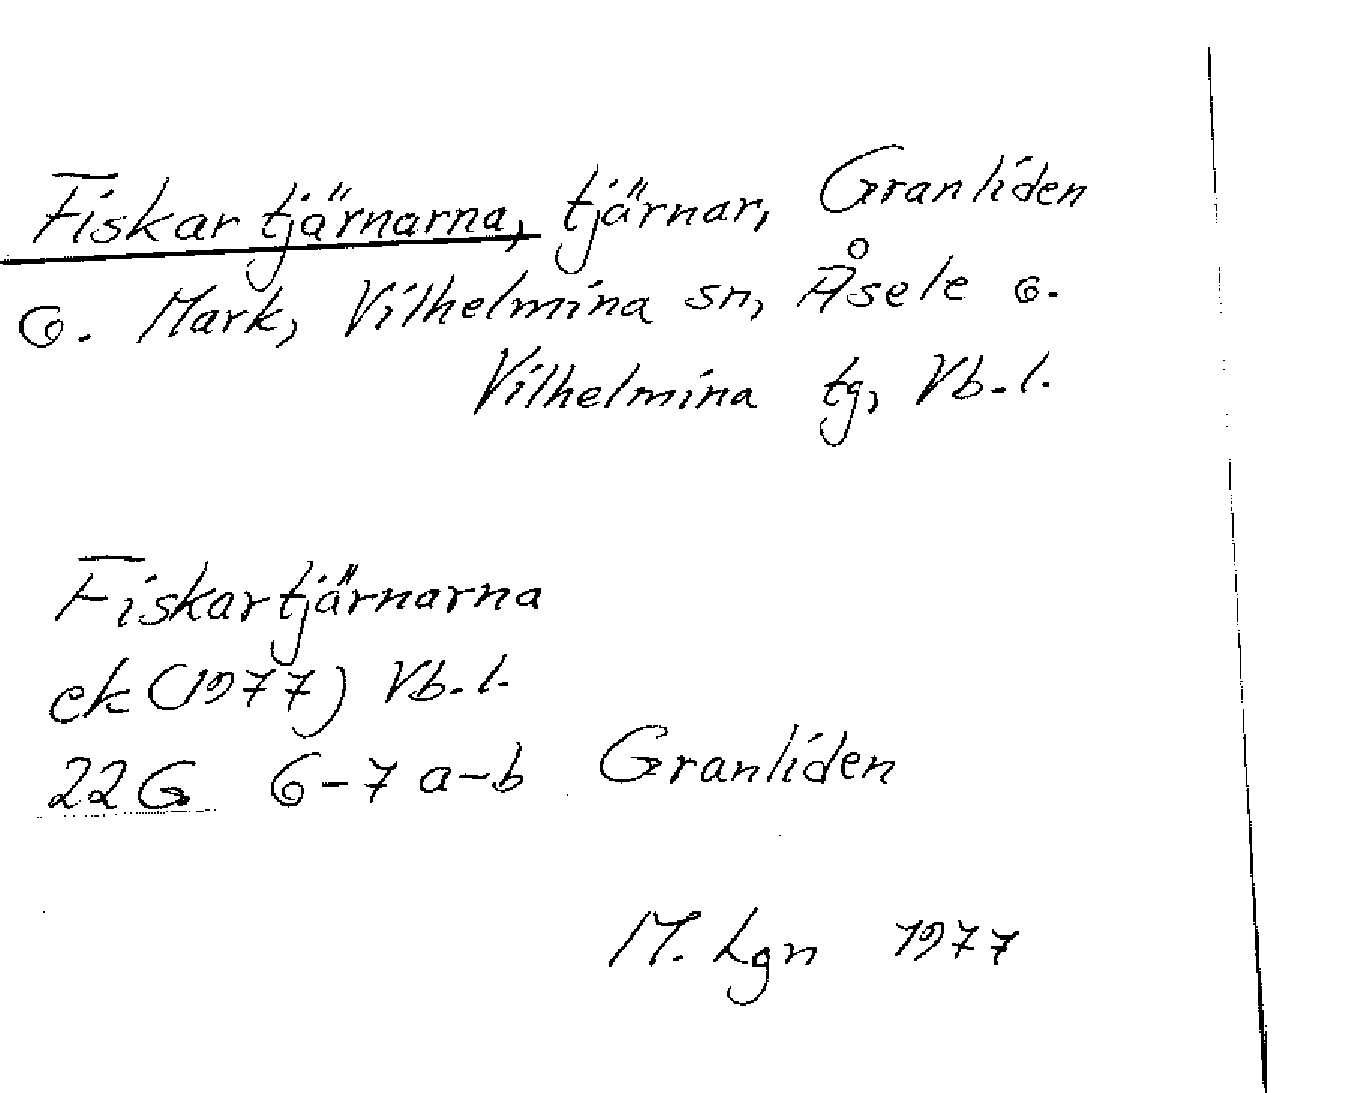 Fiskartjärnarna, tjärnar, Granliden
o. Mark, Vilhelmina sn, Åsele o.
Vilhelmina tg, Vb.l.
Fiskartjärnarna
ek (1977) Vb.l.
22G 6-7 a-b Granliden
M. Lgn 1977